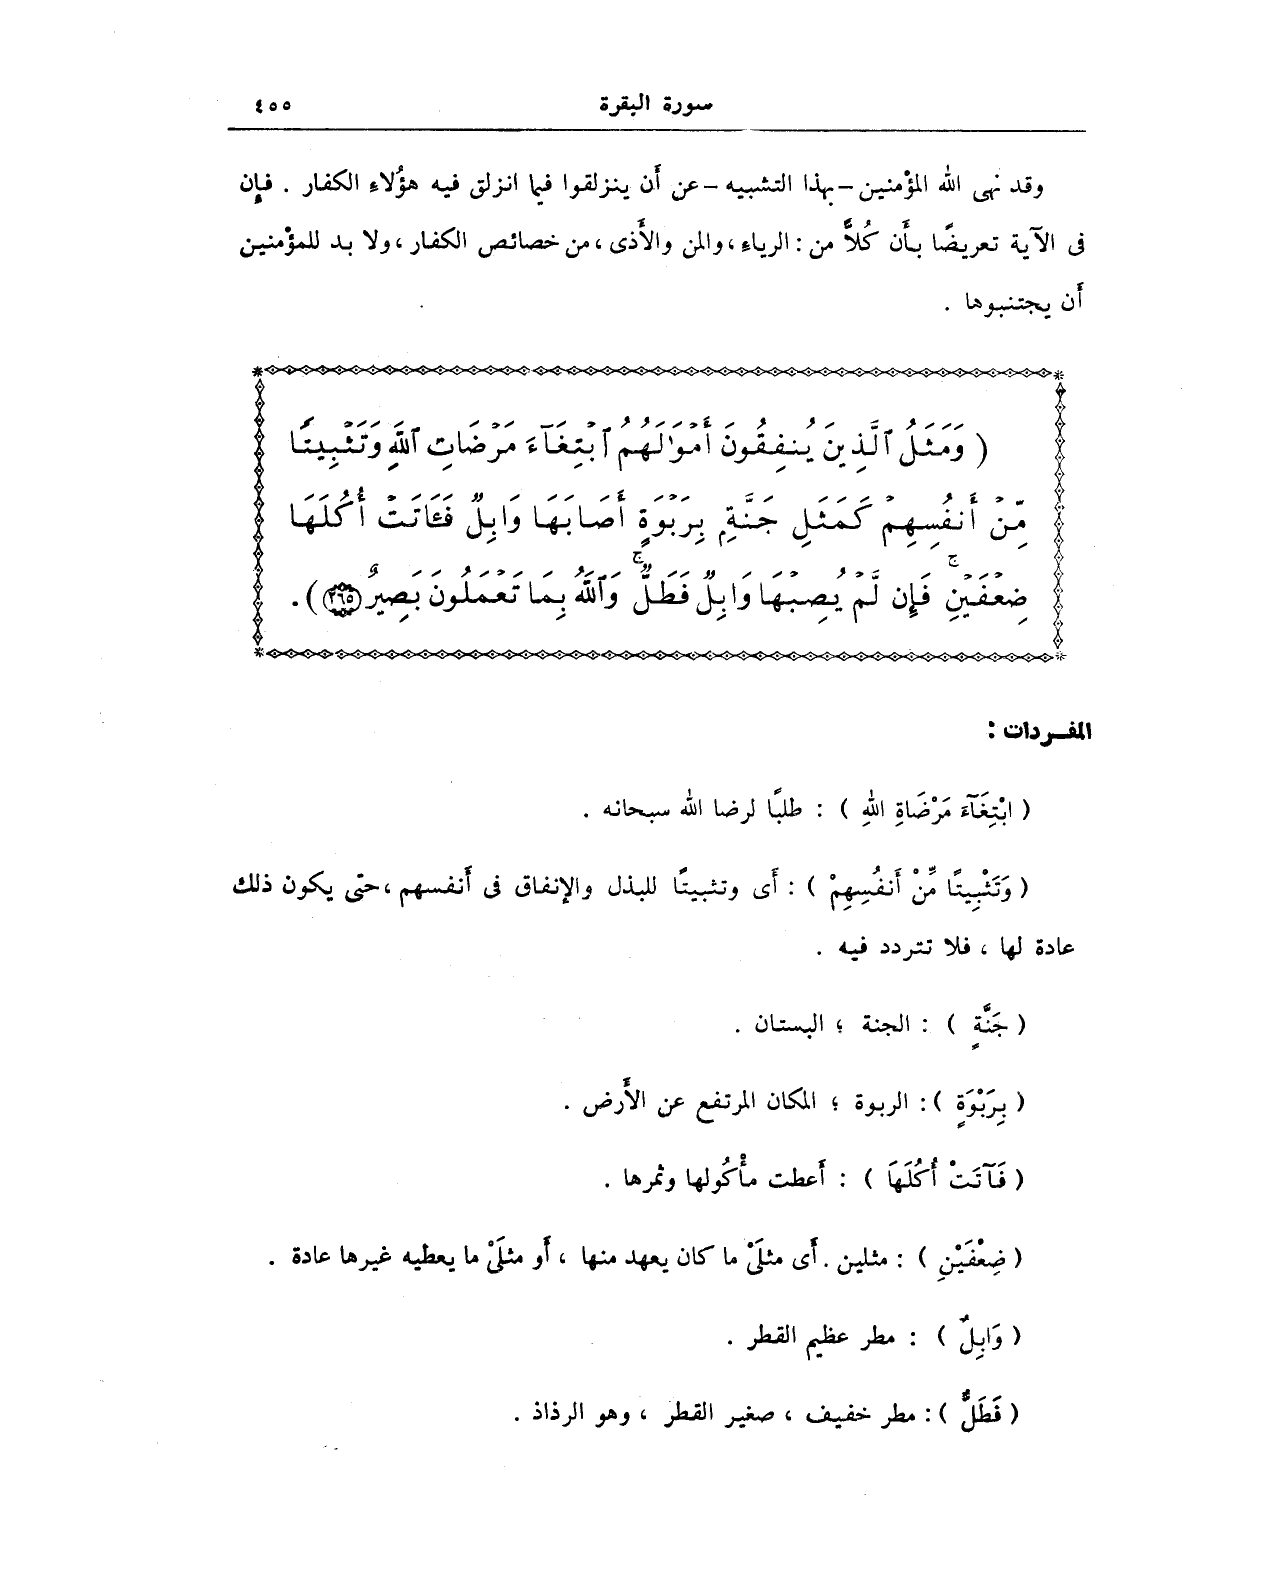 سورة البقرة ٤٥٥
وقد نهى الله المؤمنين - بهذا التشبيه - عن أن ينزلقوا فيما انزلق فيه هؤُلاءِ الكفار . فإن
فى الآية تعريضًا بأَن كُلاًّ من : الرياءِ ، والمن والأَذى ، من خصائص الكفار ، ولا بد للمؤْمنين
أَن يجتنبوها .
( وَمَثَلُ ٱلَّذِينَ يُنفِقُونَ أَمْوَٰلَهُمُ ٱبْتِغَآءَ مَرْضَاتِ ٱللَّهِ وَتَثْبِيتًا
مِّنْ أَنفُسِهِمْ كَمَثَلِ جَنَّةٍۭ بِرَبْوَةٍ أَصَابَهَا وَابِلٌ فَـَٔاتَتْ أُكُلَهَا
ضِعْفَيْنِ ۚ فَإِن لَّمْ يُصِبْهَا وَابِلٌ فَطَلٌّ ۚ وَٱللَّهُ بِمَا تَعْمَلُونَ بَصِيرٌ ٢٦٥ ) .
المفـردات :
( ابْتِغَآءَ مَرْضَاةِ اللهِ ) : طلبًا لرضا الله سبحانه .
( وَتَثْبِيتًا مِّنْ أَنفُسِهِمْ ) : أَى وتثبيتًا للبذل والإنفاق فى أَنفسهم ، حتى يكون ذلك
عادة لها ، فلا تتردد فيه .
( جَنَّةٍ ) : الجنة ؛ البستان .
( بِرَبْوَةٍ ) : الربوة ؛ المكان المرتفع عن الأَرض .
( فَآتَتْ أُكُلَهَا ) : أَعطت مأْكُولها وثمرها .
( ضِعْفَيْنِ ) : مثلين . أَى مثلَىْ ما كان يعهد منها ، أَو مثلَىْ ما يعطيه غيرها عادة .
( وَابِلٌ ) : مطر عظيم القطر .
( فَطَلٌّ ) : مطر خفيف ، صغير القطر ، وهو الرذاذ .